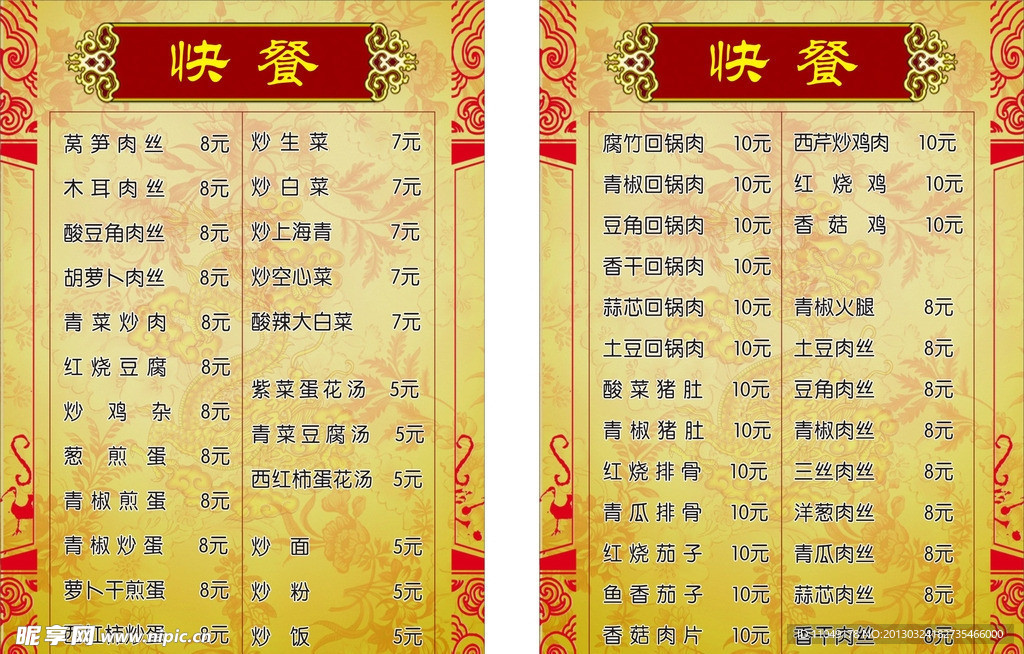 快餐
莴笋肉丝 8元
木耳肉丝 8元
酸豆角肉丝 8元
胡萝卜肉丝 8元
青菜炒肉 8元
红烧豆腐 8元
炒鸡杂 8元
葱煎蛋 8元
青椒煎蛋 8元
青椒炒蛋 8元
萝卜干煎蛋 8元
炒蛋 8元
炒生菜 7元
炒白菜 7元
炒上海青 7元
炒空心菜 7元
酸辣大白菜 7元
紫菜蛋花汤 5元
青菜豆腐汤 5元
西红柿蛋花汤 5元
炒面 5元
炒粉 5元
炒饭 5元
快餐
腐竹回锅肉 10元
青椒回锅肉 10元
豆角回锅肉 10元
香干回锅肉 10元
蒜芯回锅肉 10元
土豆回锅肉 10元
酸菜猪肚 10元
青椒猪肚 10元
红烧排骨 10元
青瓜排骨 10元
红烧茄子 10元
鱼香茄子 10元
香菇肉片 10元
西芹炒鸡肉 10元
红烧鸡 10元
香菇鸡 10元
青椒火腿 8元
土豆肉丝 8元
豆角肉丝 8元
青椒肉丝 8元
三丝肉丝 8元
洋葱肉丝 8元
青瓜肉丝 8元
蒜芯肉丝 8元
香干肉丝 8元
昵享网 www.nipic.cn